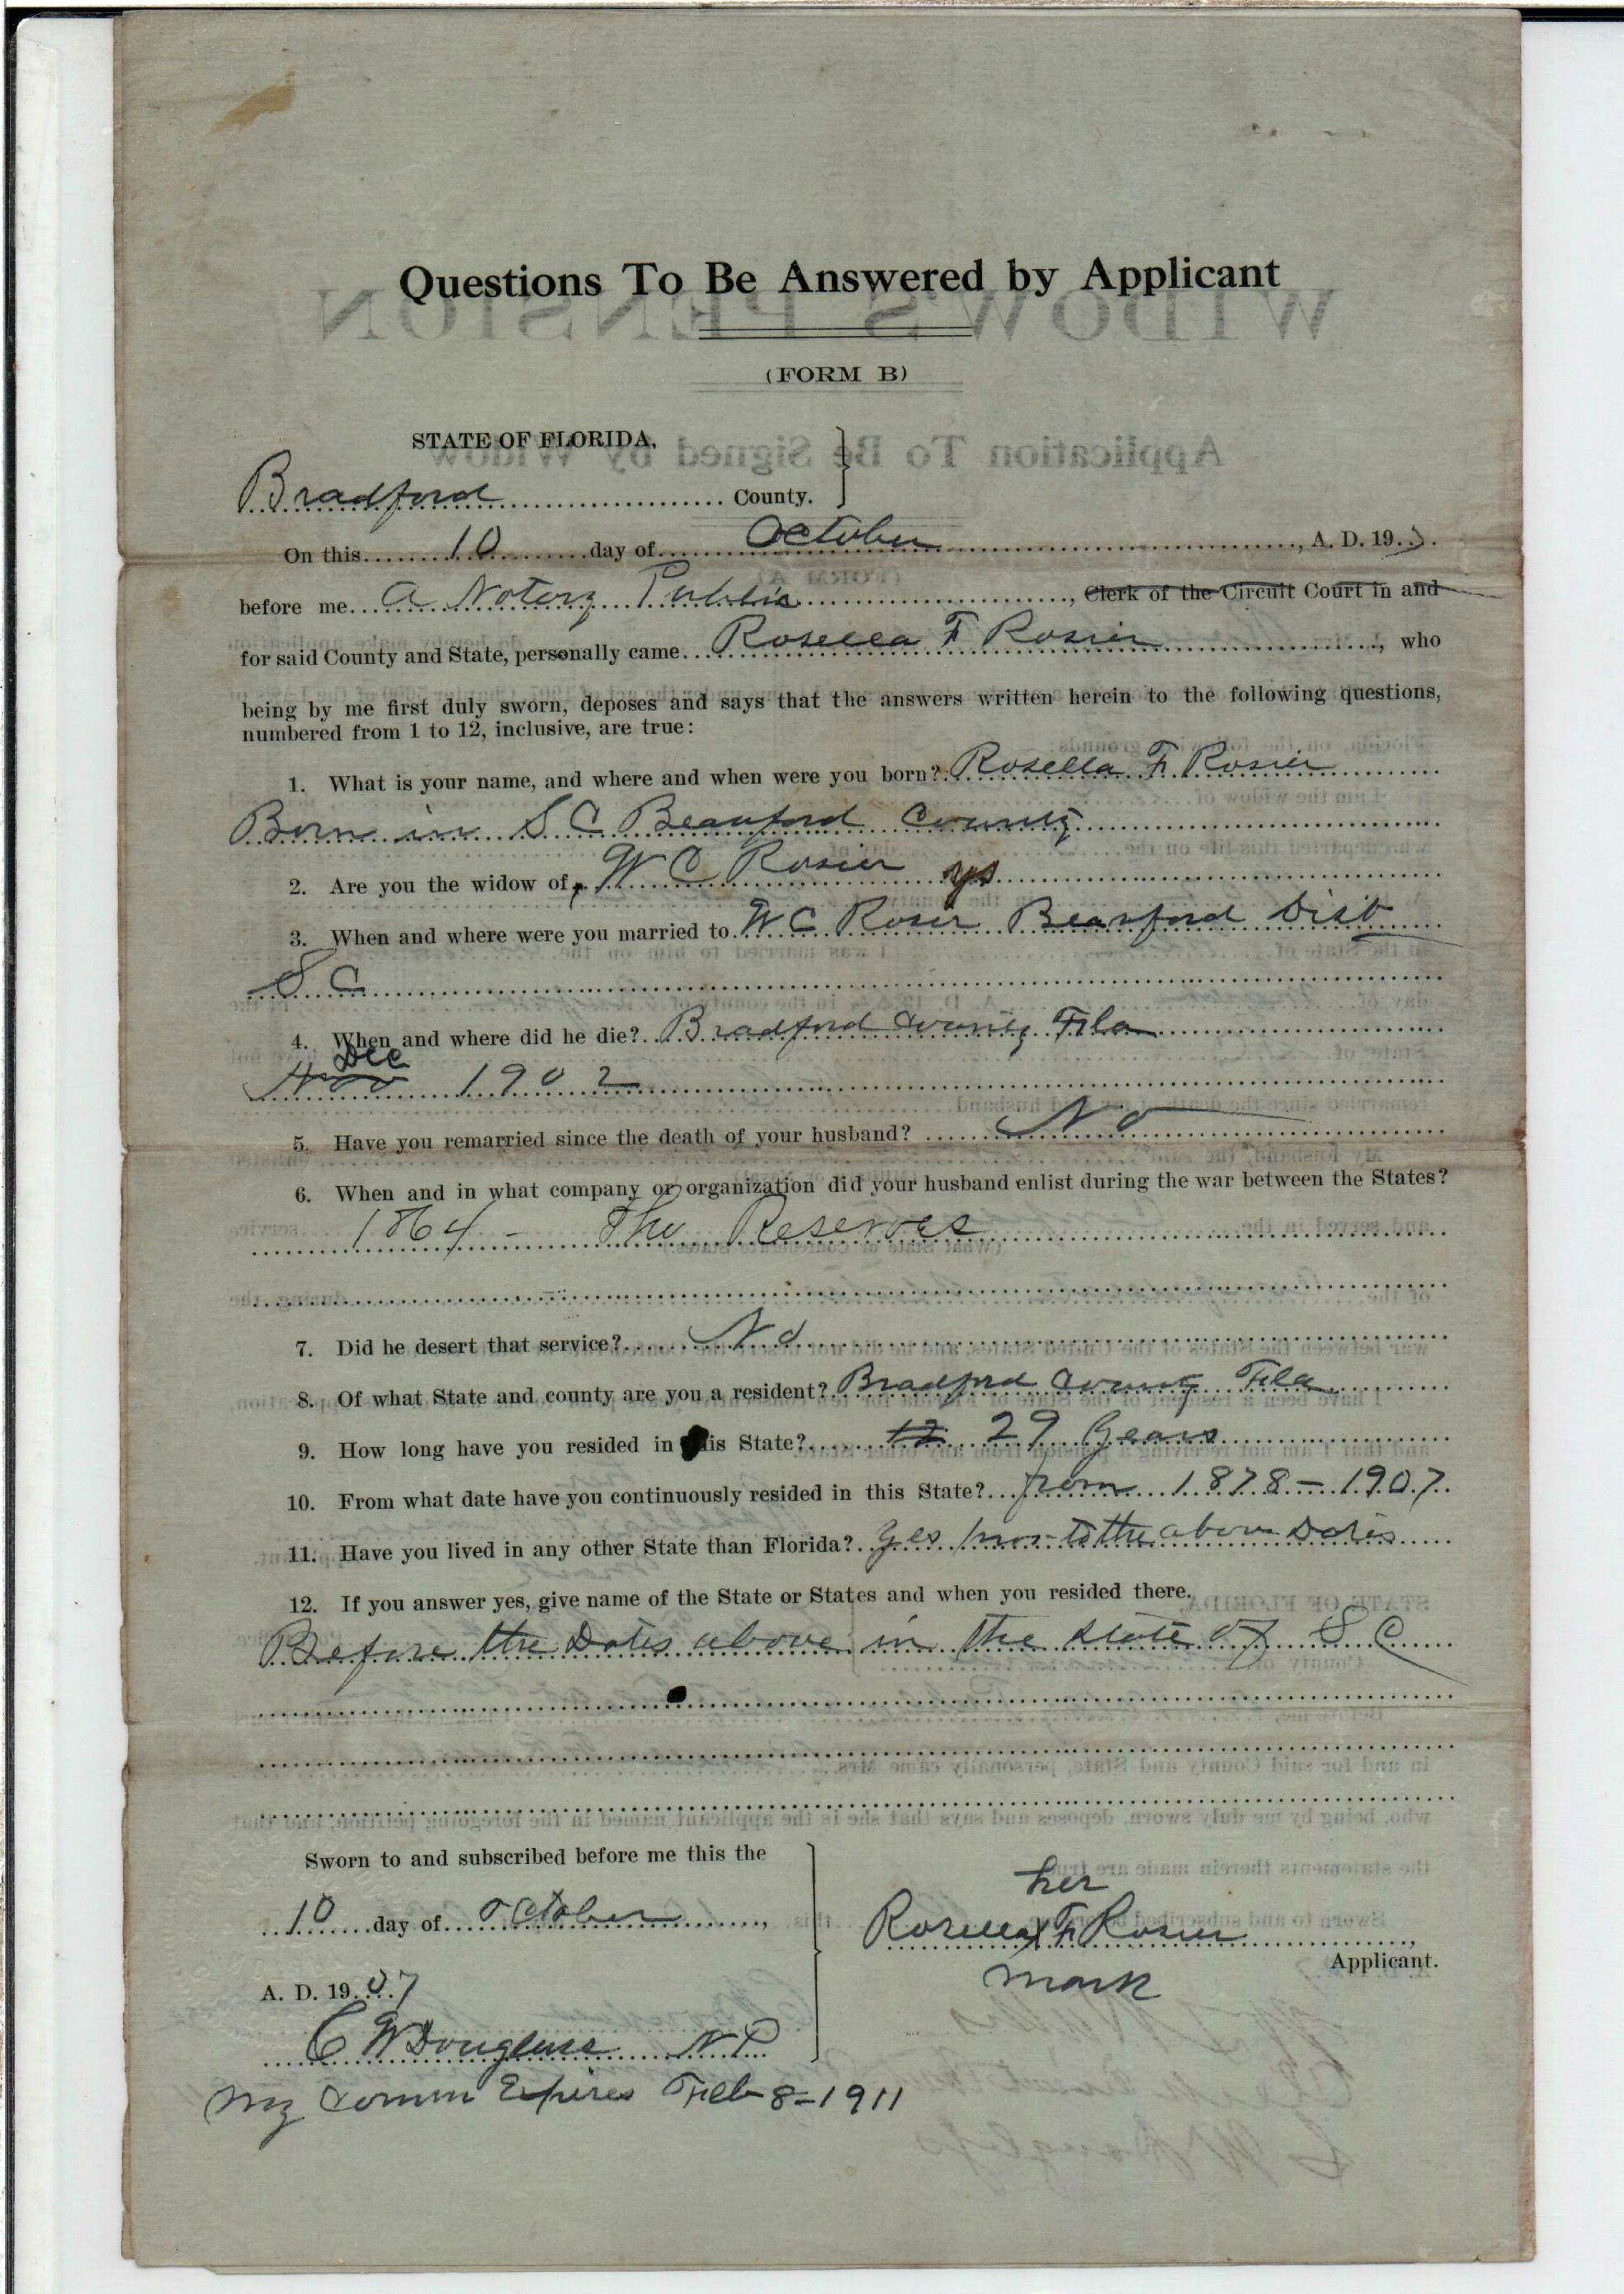 Questions To Be Answered by Applicant
(FORM B)
STATE OF FLORIDA,
Bradford County.
On this 10 day of October, A. D. 19
before me a Notery Public, Clerk of the Circuit Court in and
for said County and State, personally came Rosella F Rosier, who
being by me first duly sworn, deposes and says that the answers written herein to the following questions,
numbered from 1 to 12, inclusive, are true:
1. What is your name, and where and when were you born? Rosella F Rosier
Born in S C Beauford County
2. Are you the widow of, W C Rosier ys
3. When and where were you married to W C Roser Beauford Dist
S C
4. When and where did he die? Bradford County Fla
Nov Dec 1902
5. Have you remarried since the death of your husband? No
6. When and in what company or organization did your husband enlist during the war between the States?
1864 - The Reserves
7. Did he desert that service? No
8. Of what State and county are you a resident? Bradford County Fla
9. How long have you resided in this State? 12 29 years
10. From what date have you continuously resided in this State? from 1878 - 1907
11. Have you lived in any other State than Florida? yes to the above Dates
12. If you answer yes, give name of the State or States and when you resided there.
Before the Dates above in the state of S C
Sworn to and subscribed before me this the
10 day of October,
A. D. 1907
C W Douglass N.P.
My Comm Expires Feb 8-1911
her
Rosella X F Rosier,
Applicant.
mark
WIDOW'S PENSION
Application To Be Signed by Widow
(FORM A)